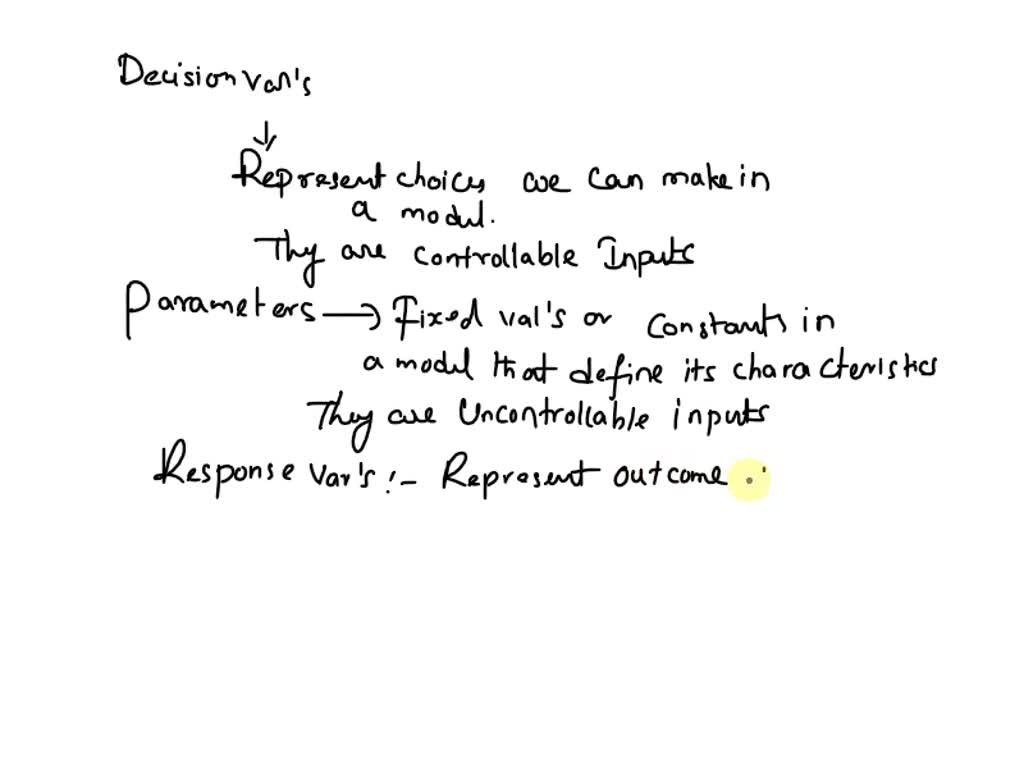 Decision var's
↓
Represent choices we can make in
a model.
They are controllable Inputs
Parameters → Fixed val's or constants in
a model that define its characteristics
They are Uncontrollable inputs
Response var's :- Represent outcome